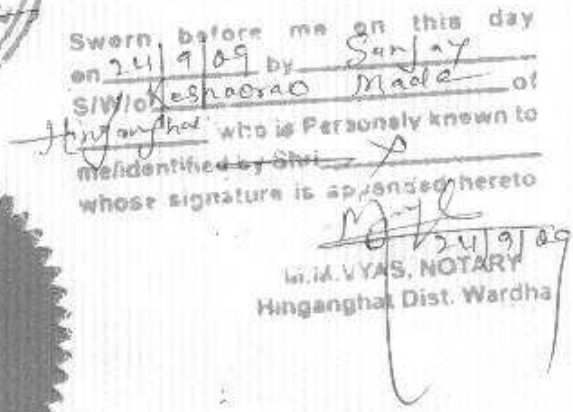 Sworn before me on this day
on 24/9/09 by Sanjay
S/W/o Keshaorao Made of
Hinganghat who is Personaly known to
me/identified by Shri X
whose signature is appended hereto
24/9/09
VYAS, NOTARY
Hinganghat Dist. Wardha